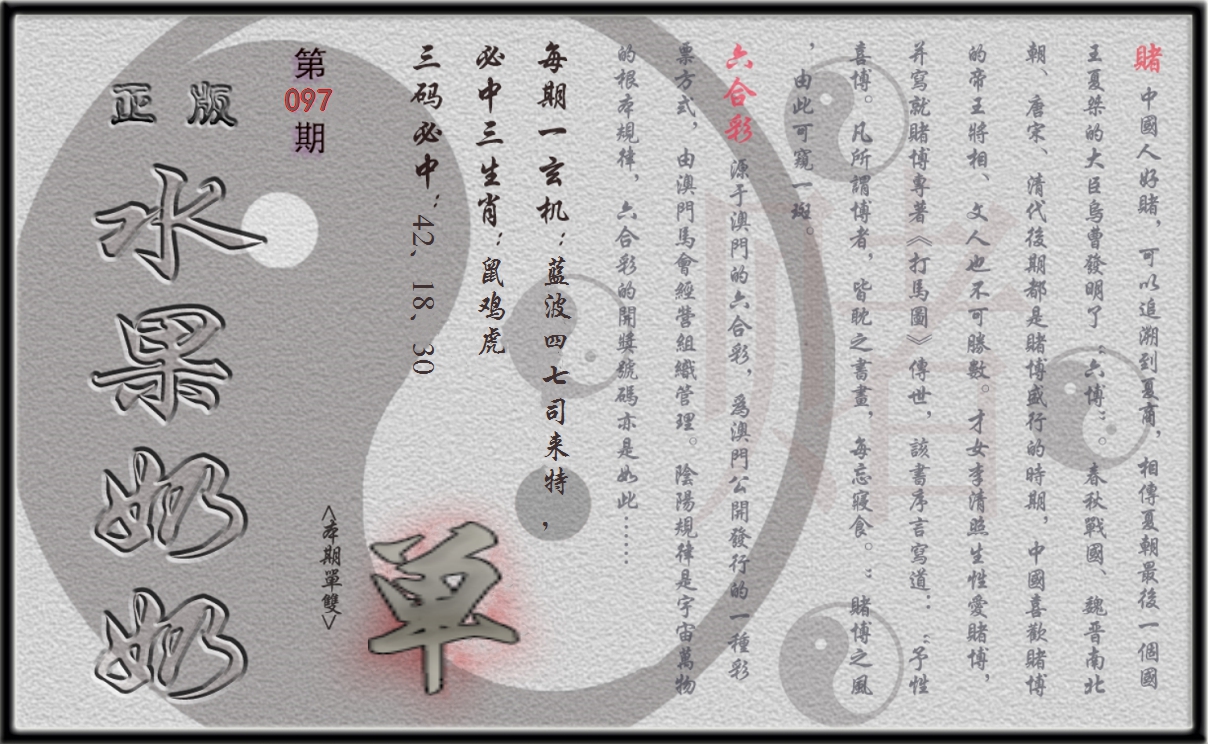 賭 中國人好賭，可以追溯到夏商，相傳夏朝最後一個國
王夏桀的大臣烏曹發明了“六博”。春秋戰國、魏晋南北
朝、唐宋、清代後期都是賭博盛行的時期，中國喜歡賭博
的帝王將相、文人也不可勝數。才女李清照生性愛賭博，
并寫就賭博專著《打馬圖》傳世，該書序言寫道：“予性
喜博。凡所謂博者，皆耽之書畫，每忘寢食。：賭博之風
，由此可窺一斑。
六合彩 源于澳門的六合彩，為澳門公開發行的一種彩
票方式，由澳門馬會經營組織管理。陰陽規律是宇宙萬物
的根本規律，六合彩的開獎號碼亦是如此……
每期一玄机：蓝波四七司来特，
必中三生肖：鼠鸡虎
三码必中：42、18、30
单
<本期單雙>
第097期
正版
水果奶奶